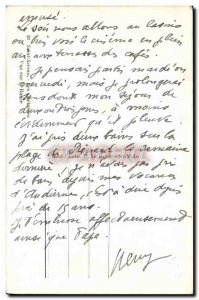 amusé.
Le soir nous allons au casino
ou bien voir le cinéma en plein
air aux terrasses des cafés.
Je pensais partir mardi ou
mercredi, mais je prolongerai
sans doute mon séjour de
deux ou trois jours, à moins
évidemment qu'il pleuve.
J'ai pris deux bains sur la
plage
la semaine
je n'avais pas pris
de bain depuis mes vacances
d'Audierne, c'est à dire depuis
près de 15 ans.
Je t'embrasse affectueusement
ainsi que Papa.